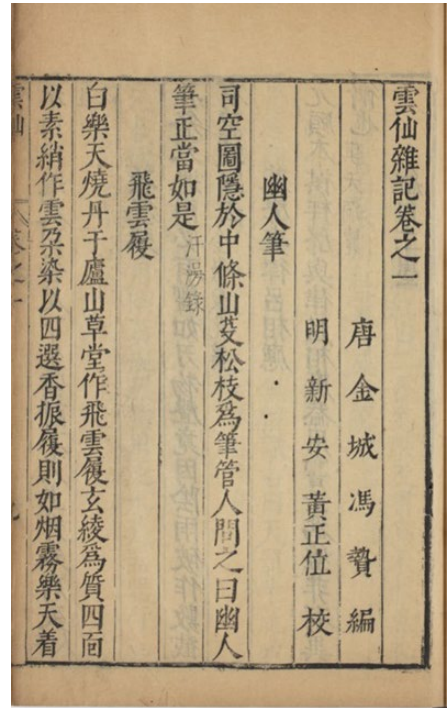 雲仙雜記卷之一
唐金城馮贄編
明新安黃正位校
幽人筆
司空圖隱於中條山芟松枝爲筆管人問之曰幽人
筆正當如是汗漫錄
飛雲履
白樂天燒丹于廬山草堂作飛雲履玄綾爲質四面
以素綃作雲朶染以四選香振履則如烟霧樂天着
雲仙
卷之一